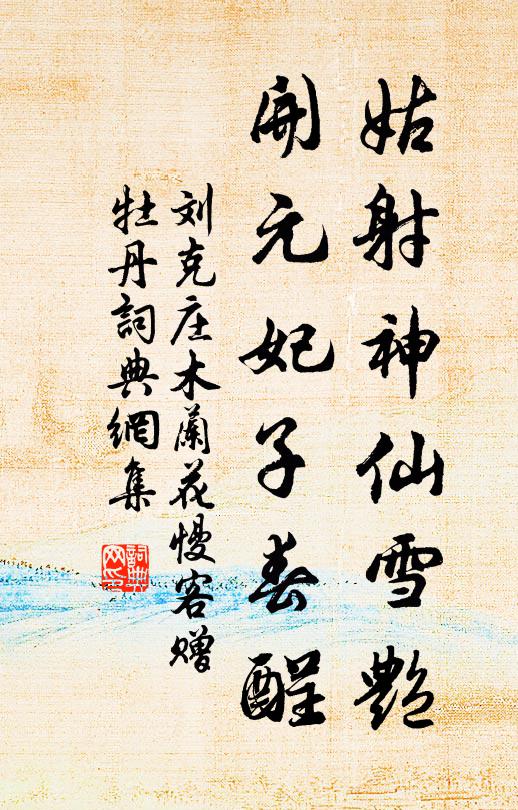 姑射神仙雪艷
開元妃子春酲
刘克庄木蘭花慢客赠
牡丹詞典網集
詞典
网印